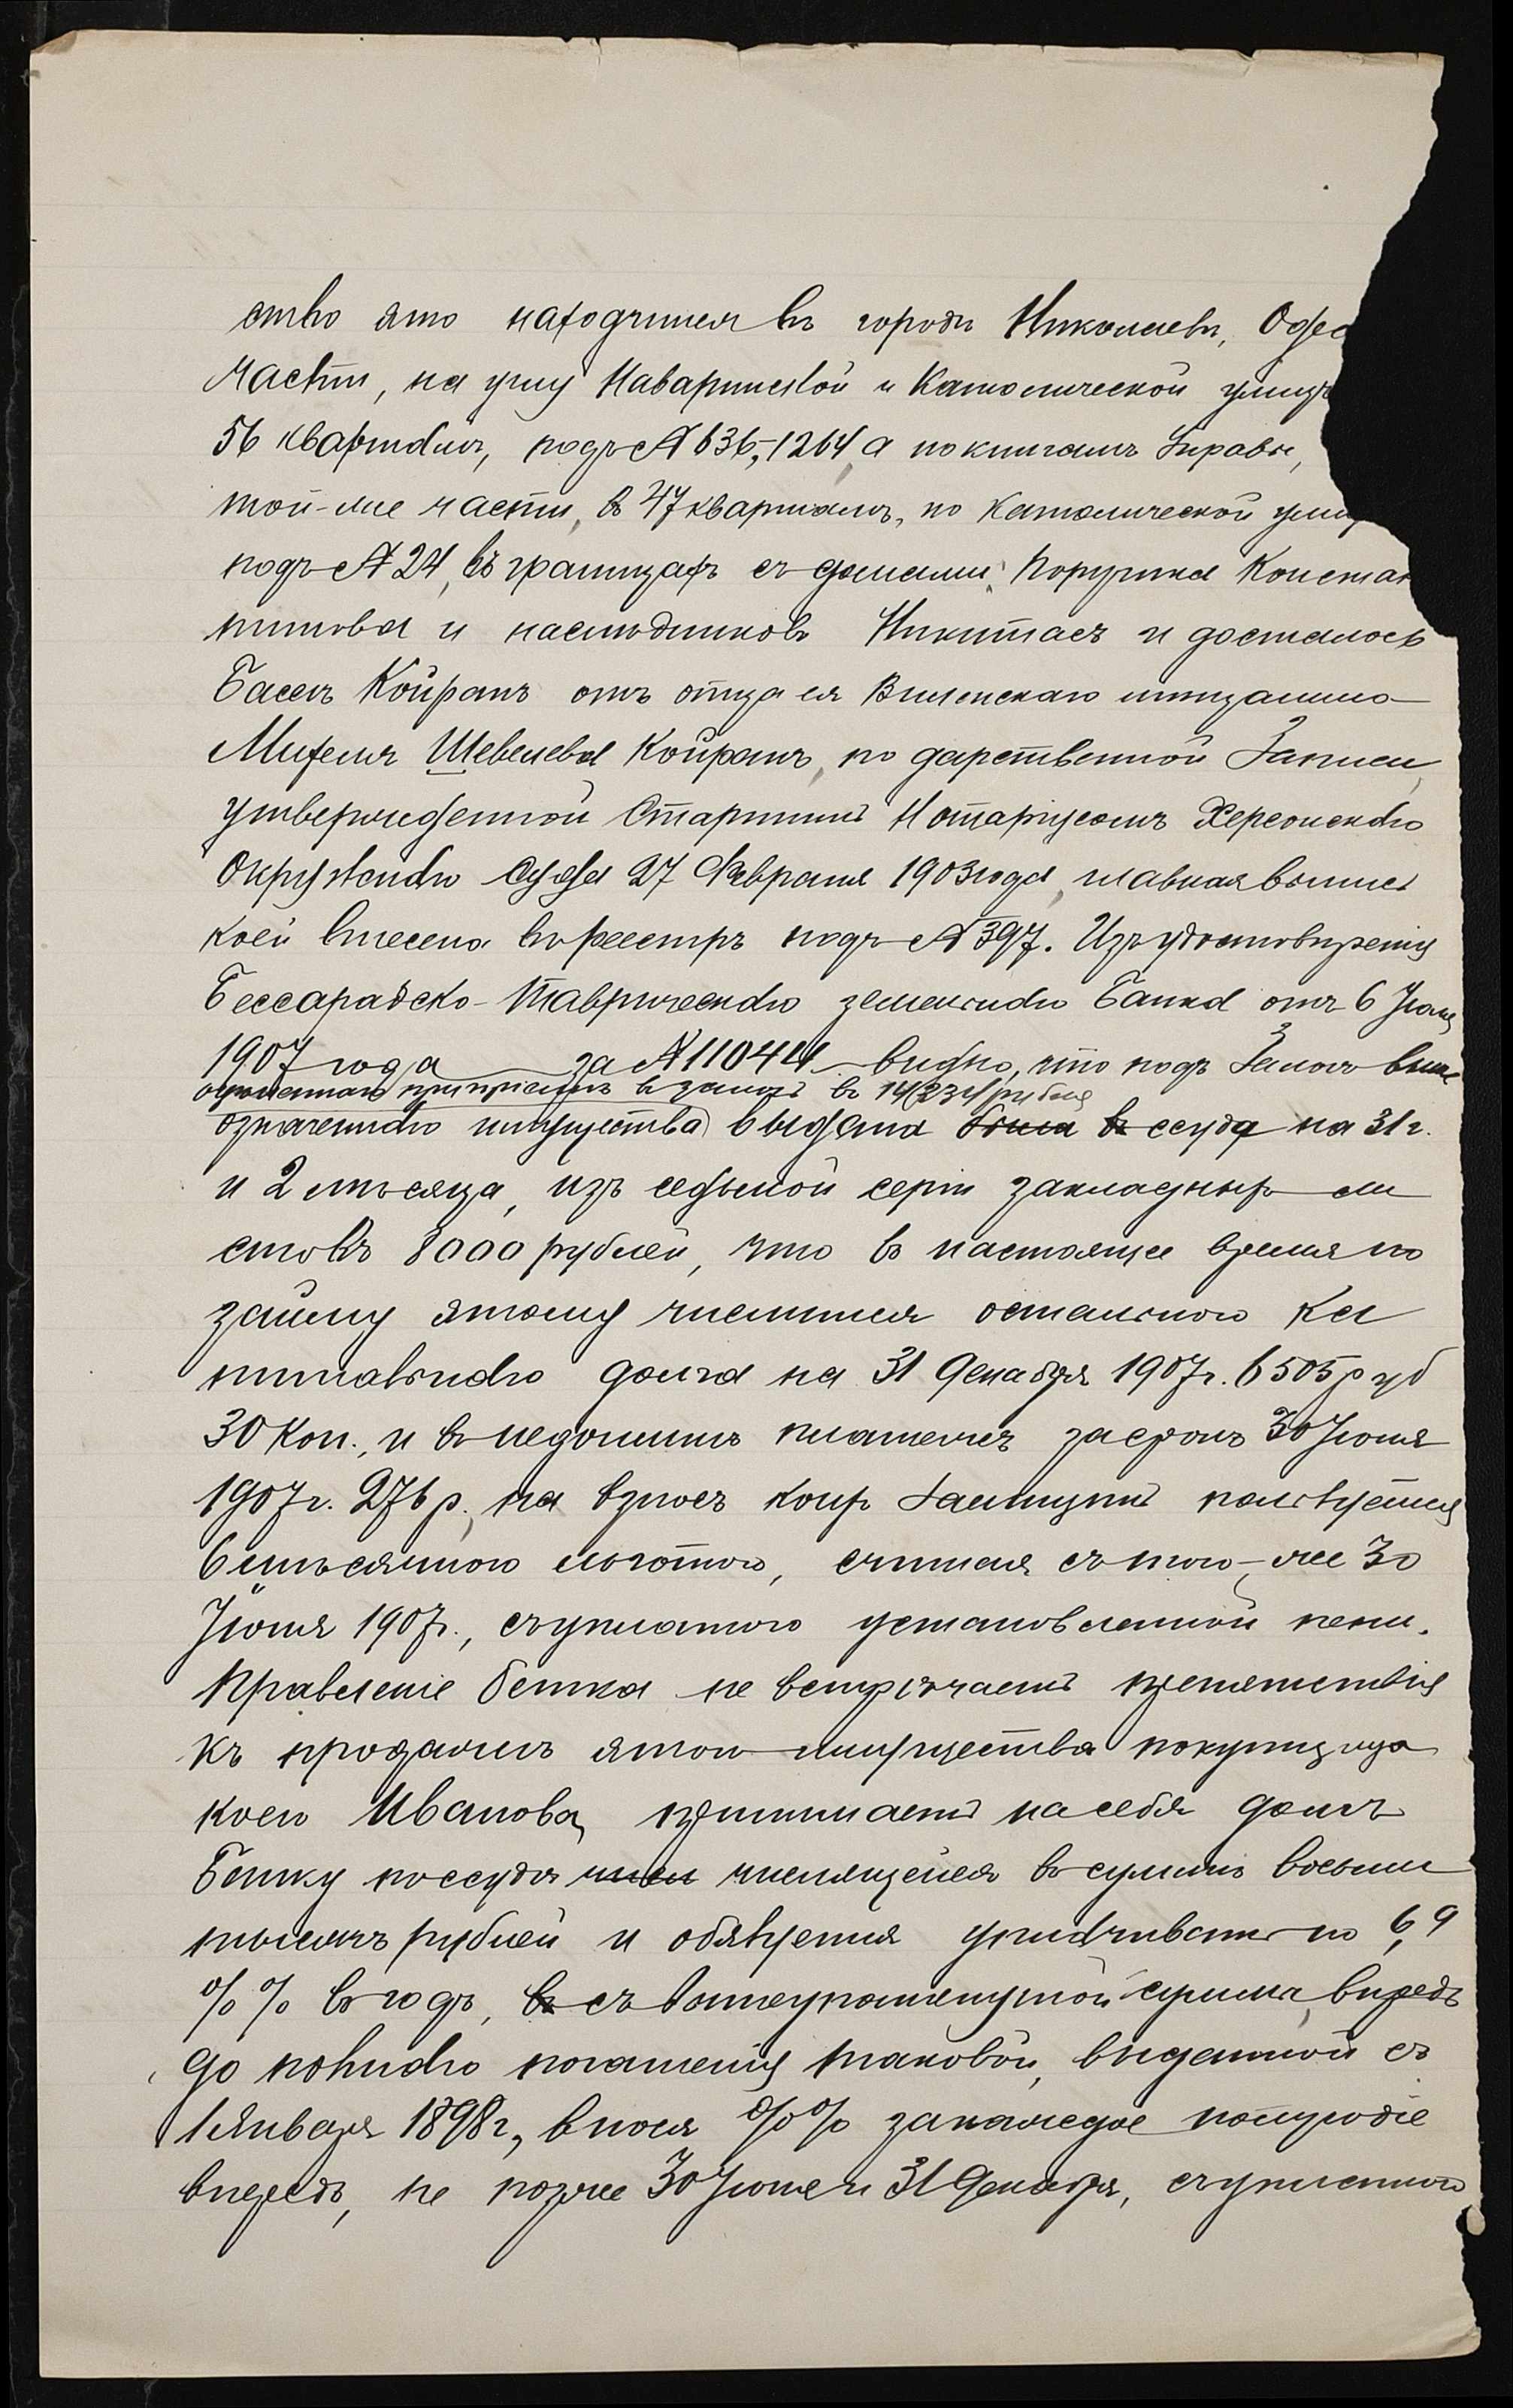 ство это находится въ городѣ Николаевѣ, Одес
части, на углу Наваринской и Католической улицъ
56 кварталѣ, подъ № 636-1264, а по книгамъ Управы,
той-же части, въ 47 кварталѣ, по Католической улиц
подъ № 24, въ границахъ съ домами: Поручика Констан
тинова и наслѣдниковъ Никитасъ и досталось
Басѣ Койранъ отъ отца ея Виленскаго мѣщанина
Михеля Шевелева Койранъ, по дарственной записи,
утвержденной Старшимъ Нотаріусомъ Херсонскаго
Окружнаго Суда 27 Февраля 1903 года, главная выпись
коей внесена въ реестръ подъ № 397. Изъ удостовѣренія
Бессарабско-Таврическаго земельнаго Банка отъ 6 Іюля
1907 года за № 11044 видно, что подъ залогъ выше
оцѣненнаго при пріемѣ въ залогъ въ 14234 рубля
означеннаго имущества выдана была въ ссуда на 31 г.
и 2 мѣсяца, изъ седьмой серіи закладныхъ ли
стовъ 8000 рублей, что въ настоящее время по
займу этому числится остального ка
питальнаго долга на 31 Декабря 1907 г. 6505 руб
30 коп., и въ недоимкѣ платежъ за срокъ 30 Іюня
1907 г. 276 р., на взносъ коихъ заемщикъ пользуется
6 мѣсячною льготою, считая съ того-же 30
Іюня 1907 г., съ уплатою установленной пени.
Правленіе банка не встрѣчаетъ препятствія
къ продажѣ этого имущества покупщица
коего Иванова, принимаетъ на себя долгъ
Банку по ссудѣ числ числящейся въ суммѣ восьми
тысячъ рублей и обязуется уплачивать по 6,9
%% въ годъ, въ съ вышеупомянутой суммы, впредь
до полнаго погашенія таковой, выданной съ
1 Января 1898 г., внося %% за каждое полугодіе
впередъ, не позже 30 Іюня и 31 Декабря, съ уплатою